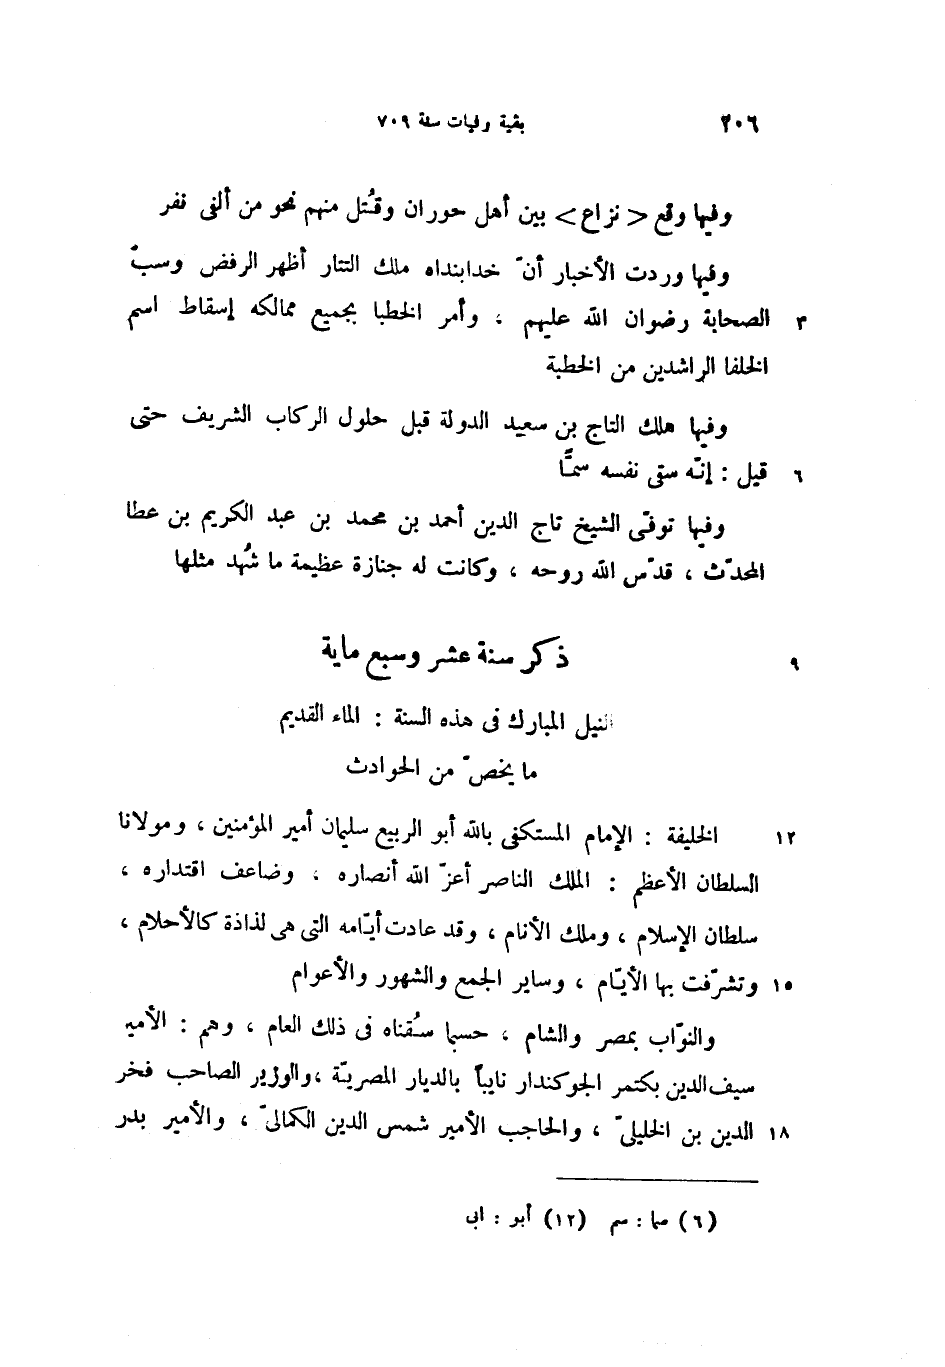 ٢٠٦ بقية وفيات سنة ٧٠٩
وفيها وقع < نزاع > بين أهل حوران وقُتل منهم نحو من ألفى نفر
وفيها وردت الأخبار أنّ خدابنداه ملك التتار أظهر الرفض وسبّ
٣ الصحابة رضوان الله عليهم ، وأمر الخطبا بجميع ممالكه إسقاط اسم
الخلفا الراشدين من الخطبة
وفيها هلك التاج بن سعيد الدولة قبل حلول الركاب الشريف حتى
٦ قيل : إنّه سقى نفسه سمًّا
وفيها توفّى الشيخ تاج الدين أحمد بن محمد بن عبد الكريم بن عطا
المحدّث ، قدّس الله روحه ، وكانت له جنازة عظيمة ما شُهد مثلها
٩ ذكر سنة عشر وسبع ماية
النيل المبارك فى هذه السنة : الماء القديم
ما يخصّ من الحوادث
١٢ الخليفة : الإمام المستكفى بالله أبو الربيع سليمان أمير المؤمنين ، ومولانا
السلطان الأعظم : الملك الناصر أعزّ الله أنصاره ، وضاعف اقتداره ،
سلطان الإسلام ، وملك الأنام ، وقد عادت أيّامه التى هى لذاذة كالأحلام ،
١٥ وتشرّفت بها الأيّام ، وساير الجمع والشهور والأعوام
والنوّاب بمصر والشام ، حسبما سُقناه فى ذلك العام ، وهم : الأمير
سيف الدين بكتمر الجوكندار نايباً بالديار المصريّة ، والوزير الصاحب فخر
١٨ الدين بن الخليلىّ ، والحاجب الأمير شمس الدين الكمالىّ ، والأمير بدر
(٦) سما : سم (١٢) أبو : ابى